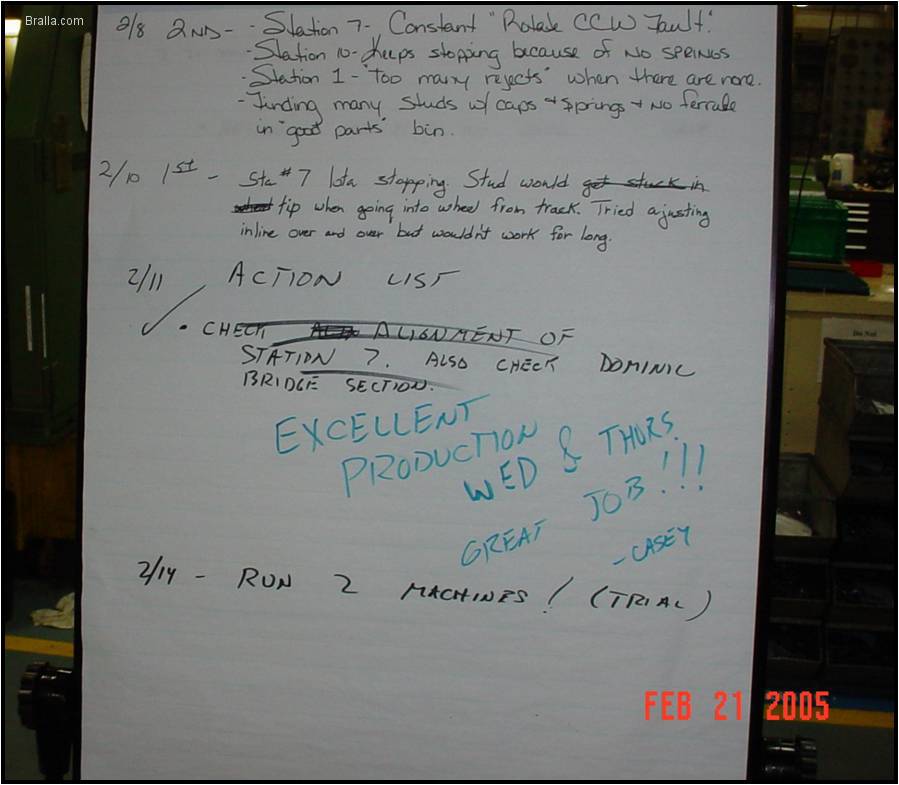 Bralla.com
2/8 2ND - - Station 7 - Constant "Rotate CCW Fault".
- Station 10 - Keeps stopping because of NO SPRINGS
- Station 1 - "Too many rejects" when there are none.
- Finding many studs w/ caps + springs + NO ferrule
in "good parts" bin.
2/10 1st - Sta #7 lota stopping. Stud would get stuck in
wheel tip when going into wheel from track. Tried ajusting
inline over and over but wouldn't work for long.
2/11 ACTION LIST
✓ • CHECK ALIGNMENT OF
STATION 7. ALSO CHECK DOMINIC
BRIDGE SECTION.
EXCELLENT
PRODUCTION
WED & THURS.
GREAT JOB!!!
- CASEY
2/14 - RUN 2 MACHINES! (TRIAL)
FEB 21 2005